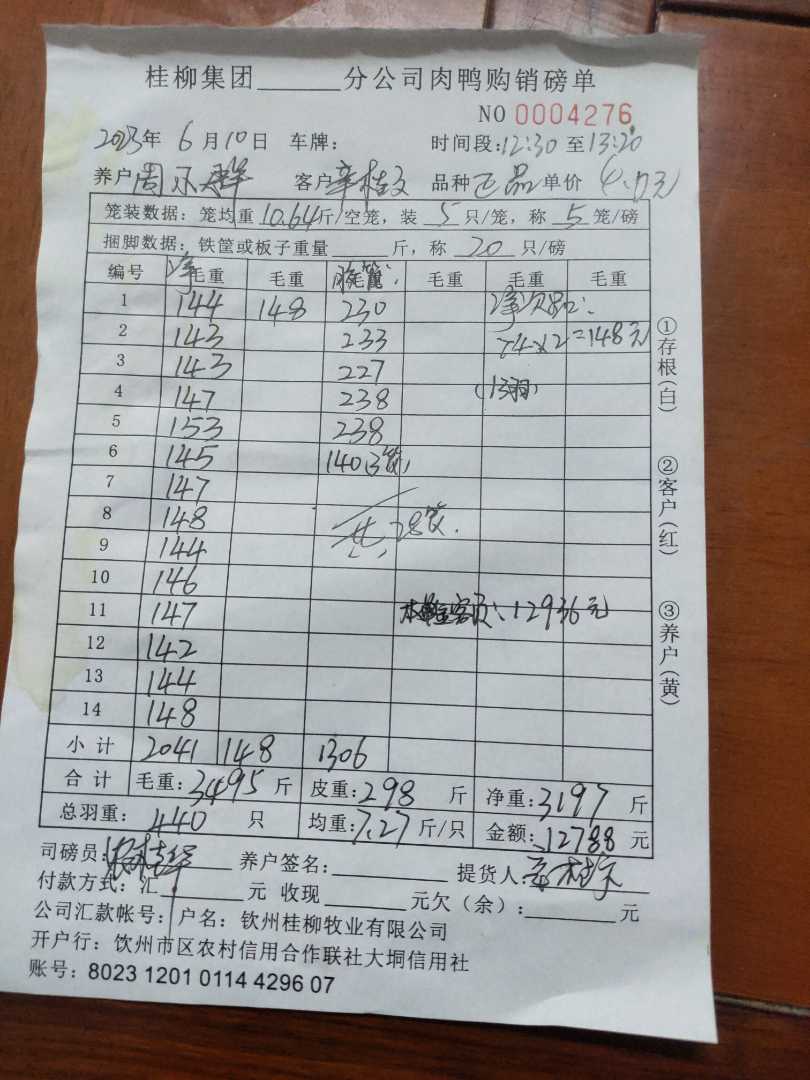 桂柳集团______分公司肉鸭购销磅单
NO 0004276
2023年 6月10日 车牌: 时间段:12:30至13:20
养户 周 客户 辛桂文 品种 正品 单价 4.0元
笼装数据: 笼均重10.64斤/空笼, 装 5 只/笼, 称 5 笼/磅
捆脚数据: 铁筐或板子重量____斤, 称 20 只/磅
编号 净毛重 毛重 毛重 毛重 毛重
1 144 148 230 净次品:
2 143 233 74×2=148元
3 143 227
4 147 238 (13羽)
5 153 238
6 145 140(3笼)
7 147
8 148 共28笼.
9 144
10 146
11 147 12936元
12 142
13 144
14 148
小计 2041 148 1306
合计 毛重:3495斤 皮重:298斤 净重:3197斤
总羽重: 440 只 均重:7.27斤/只 金额:12788元
司磅员: 养户签名: 提货人:辛桂文
付款方式: 汇______元 收现______元欠(余):______元
公司汇款帐号: 户名: 钦州桂柳牧业有限公司
开户行: 饮州市区农村信用合作联社大垌信用社
账号: 8023 1201 0114 4296 07
①存根(白)
②客户(红)
③养户(黄)